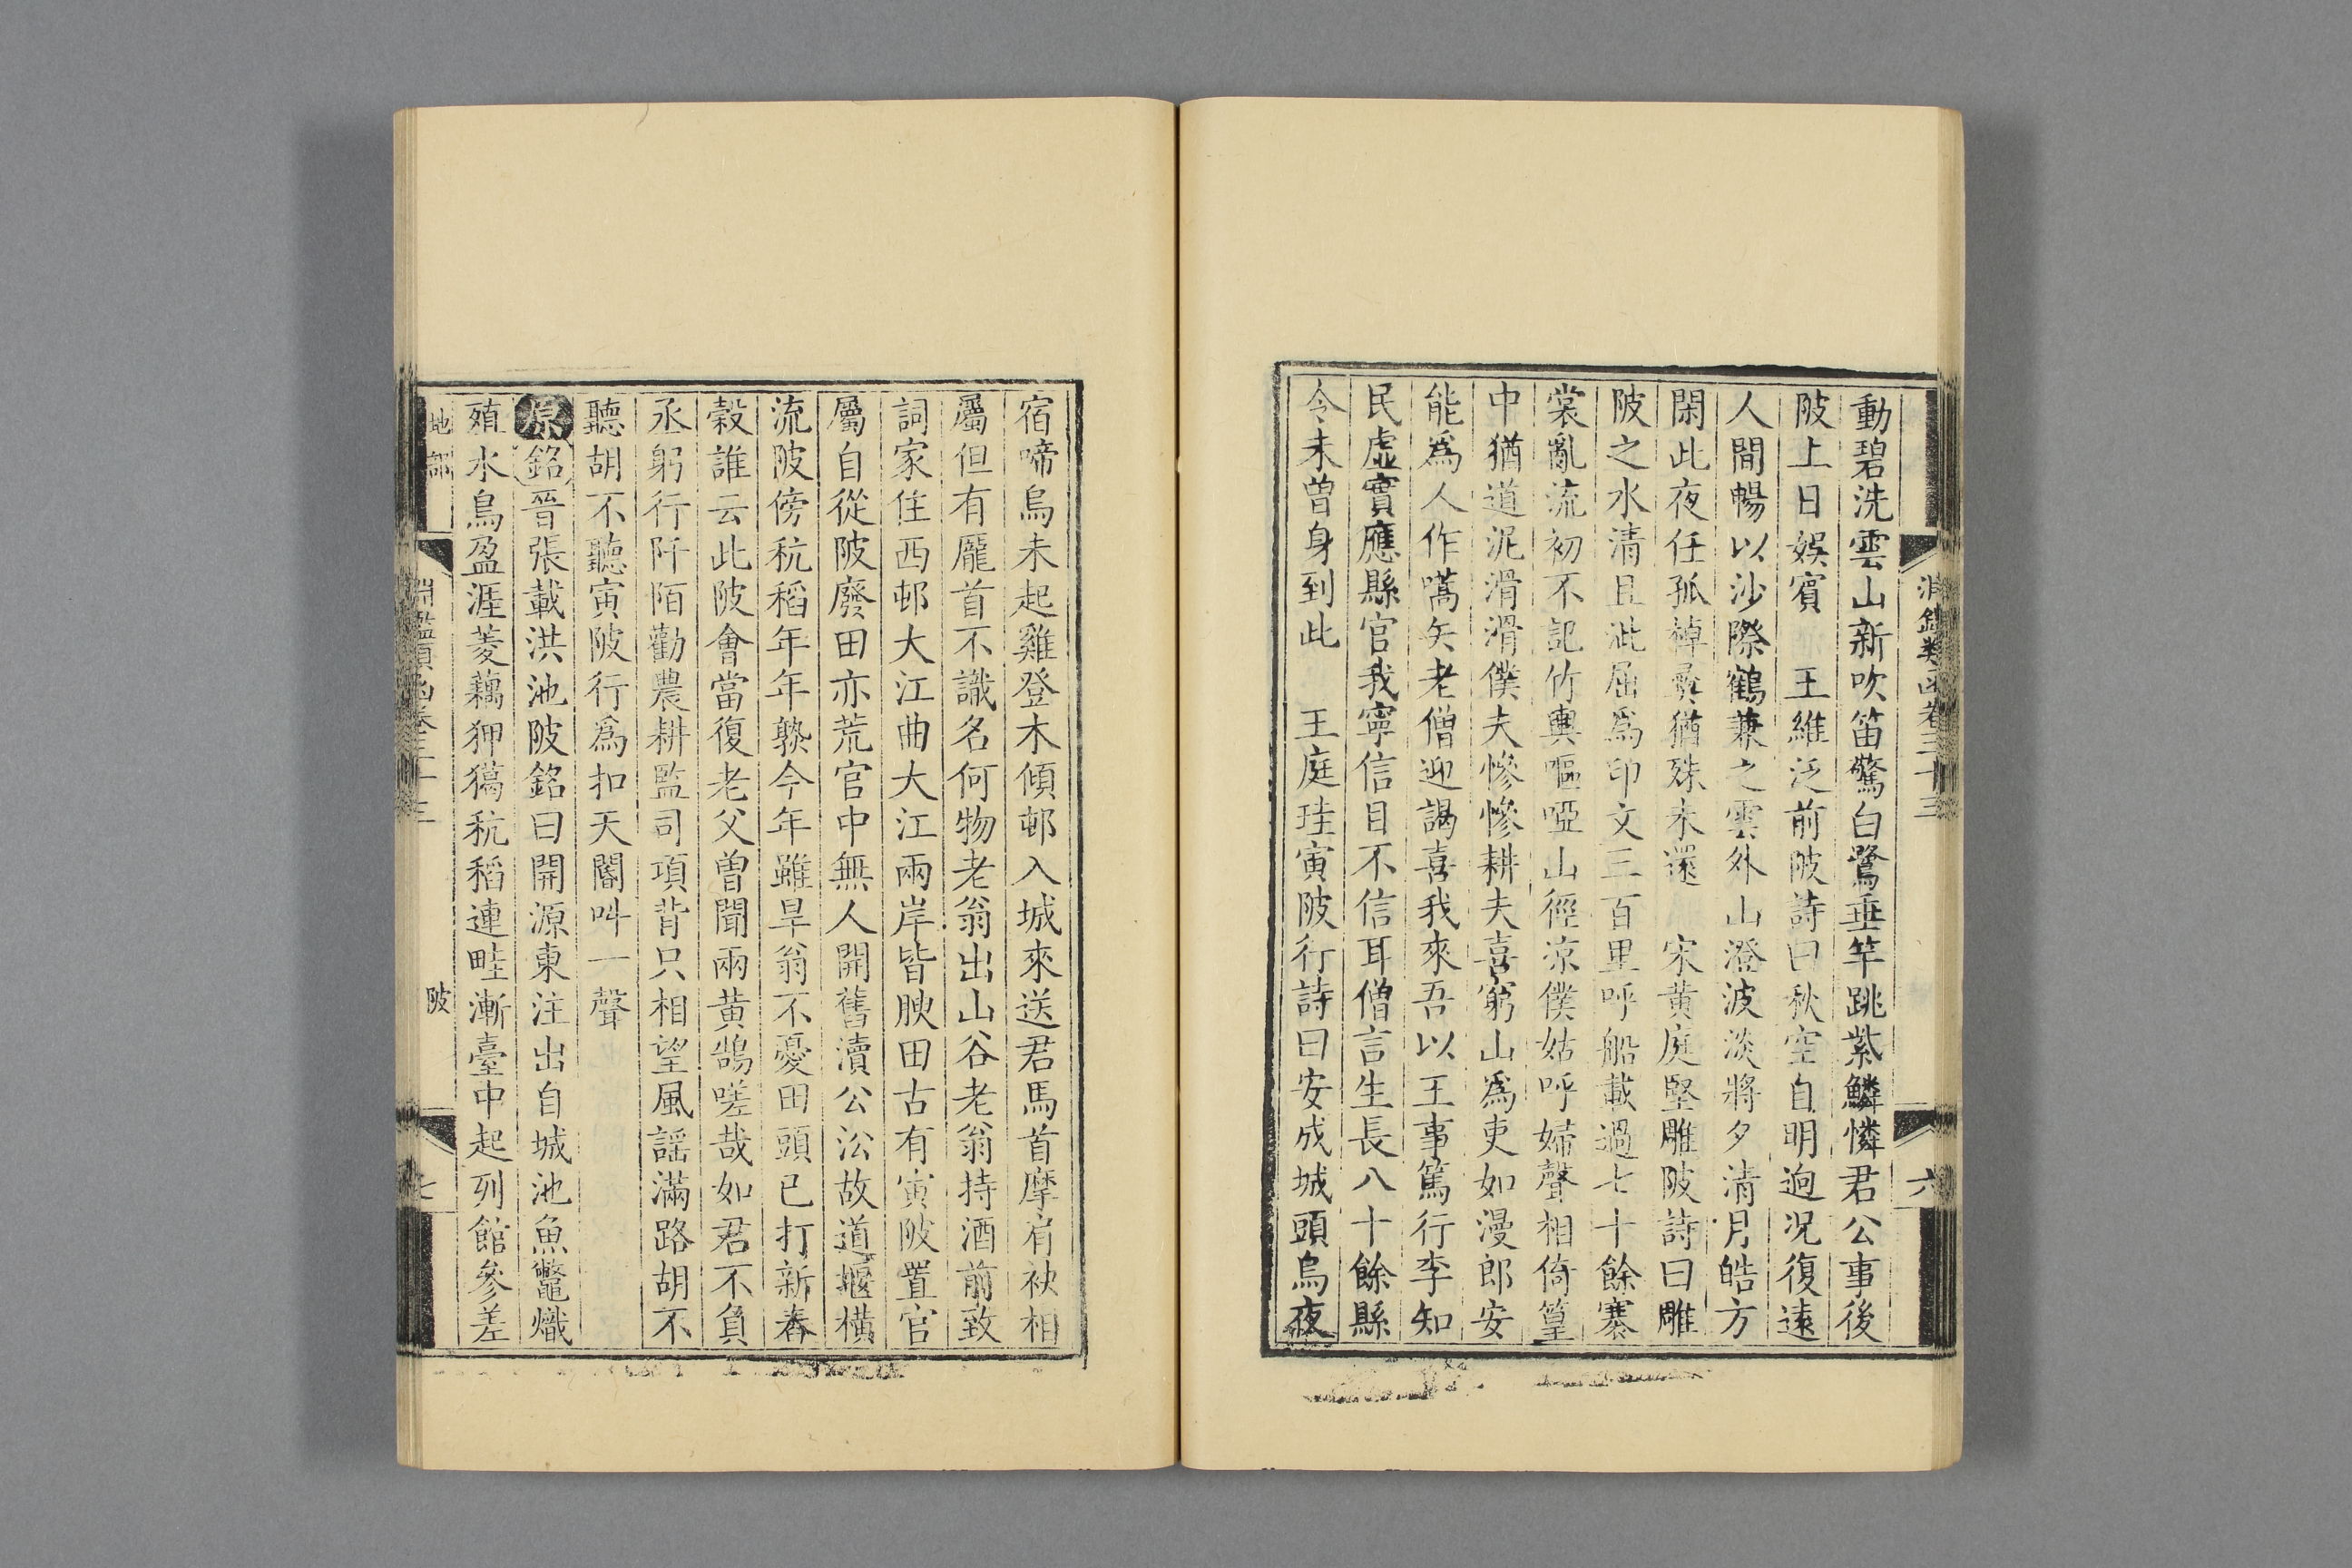 淵鑑類函卷三十三
六
動碧洗雲山新吹笛驚白鷺垂竿跳紫鱗憐君公事後
陂上日娛賓　王維泛前陂詩曰秋空自明逈況復遠
人間暢以沙際鶴兼之雲外山澄波淡將夕清月皓方
閑此夜任孤棹夷猶殊未還　宋黃庭堅雕陂詩曰雕
陂之水清且泚屈爲印文三百里呼船載過七十餘褰
裳亂流初不記竹輿嘔啞山徑凉僕姑呼婦聲相倚篁
中猶道泥滑滑僕夫慘慘耕夫喜窮山爲吏如漫郎安
能爲人作嚆矢老僧迎謁喜我來吾以王事篤行李知
民虛實應縣官我寧信目不信耳僧言生長八十餘縣
令未曾身到此　王庭珪寅陂行詩曰安成城頭烏夜
宿啼烏未起雞登木傾邨入城來送君馬首摩肩袂相
屬但有龎首不識名何物老翁出山谷老翁持酒前致
詞家住西邨大江曲大江兩岸皆腴田古有寅陂置官
屬自從陂廢田亦荒官中無人開舊瀆公㳂故道堰橫
流陂傍秔稻年年熟今年雖旱翁不憂田頭已打新舂
穀誰云此陂會當復老父曾聞兩黃鵠嗟哉如君不負
丞躬行阡陌勸農耕監司項背只相望風謡滿路胡不
聽胡不聽寅陂行爲扣天閽呌一聲
原銘晉張載洪池陂銘曰開源東注出自城池魚鼈熾
殖水鳥盈涯菱藕狎獦秔稻連畦漸臺中起列館參差
地部
淵鑑類函卷三十三
陂
七